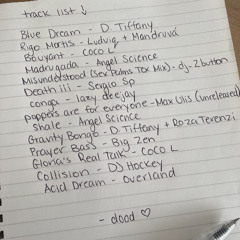 track list ↓
Blue Dream - D. Tiffany
Rigo Mortis - Ludvig + Mandruvá
Bouyant - COCO L
Madrugada - Angel Science
Misunderstood (Sex Palms Tox Mix) - dj-2button
Death iii - Sergio Sp
conga - lazy deejay
poppers are for everyone - Max Ulis (unreleased)
Shale - Angel Science
Gravity Bongo - D. Tiffany + Roza Terenzi
Prayer Bass - Big Zen
Gloria's Real Talk - COCO L
Collision - DJ Hockey
Acid Dream - Overland
- dood ♡